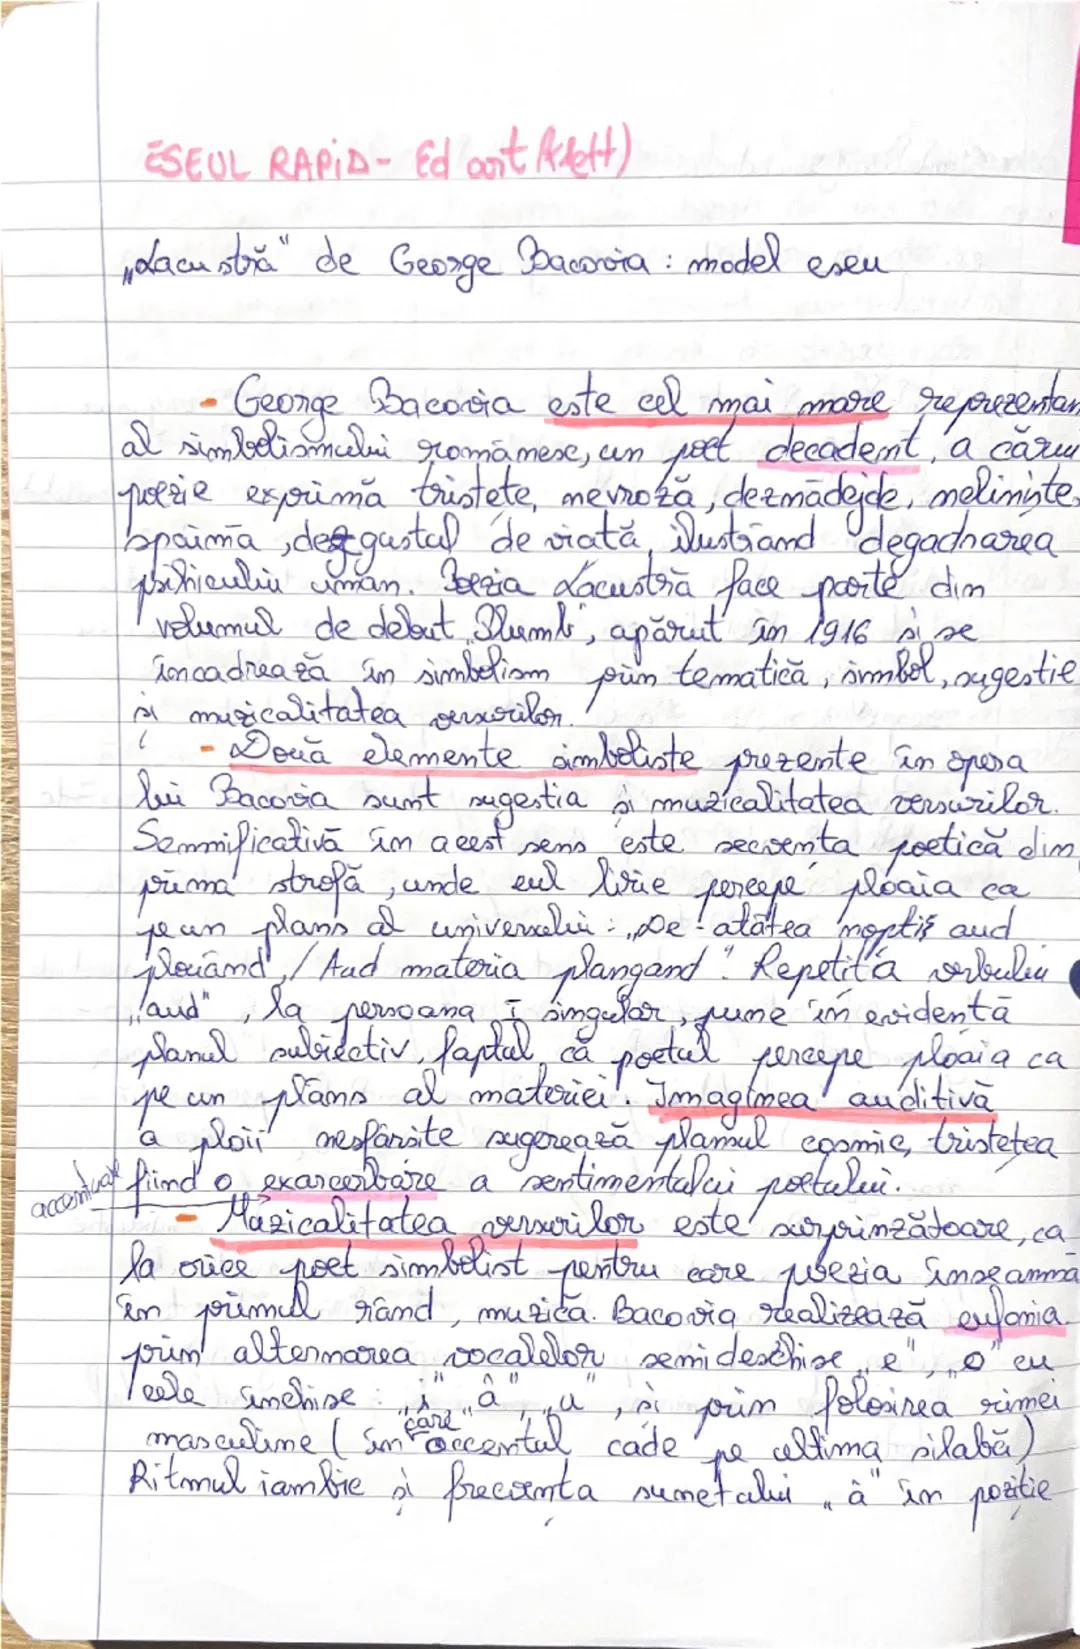 ESEUL RAPID - Ed art
„Lacustră" de George Bacovia : model eseu
- George Bacovia este cel mai mare reprezentan
al simbolismului românesc, un poet decadent, a cărui
poezie exprimă tristețe, nevroză, deznădejde, neliniște,
spaimă, dezgustul de viață, ilustrând degadnarea
psihicului uman. Poezia Lacustră face parte din
volumul de debut „Plumb", apărut în 1916 și se
încadrează în simbolism prin tematică, simbol, sugestie
și muzicalitatea versurilor.
- Două elemente simboliste prezente în opera
lui Bacovia sunt sugestia și muzicalitatea versurilor.
Semnificativă în acest sens este secvența poetică din
prima strofă, unde eul liric percepe ploaia ca
pe un plâns al universului : „De-atâtea nopți aud
plouând, / Aud materia plângând". Repetiția verbului
„aud", la persoana I singular, pune în evidență
planul subiectiv, faptul că poetul percepe ploaia ca
pe un plâns al materiei. Imaginea auditivă
a ploii nesfârșite sugerează planul cosmic, tristețea
accentuat fiind o exarcerbare a sentimentului poetului.
- Muzicalitatea versurilor este surprinzătoare, ca
la orice poet simbolist pentru care poezia înseamnă
în primul rând, muzică. Bacovia realizează eufonia
prin alternarea vocalelor semideschise „e", „o" cu
cele închise : „i", „â", „u", și prin folosirea rimei
masculine ( în care accentul cade pe ultima silabă)
Ritmul iambic și frecvența sunetului „â" în poziție